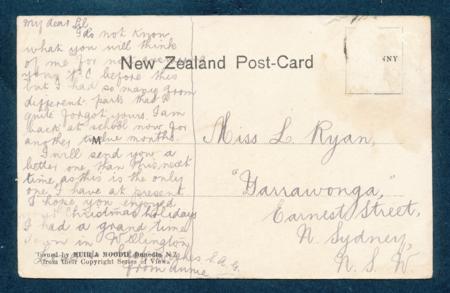 My dear
I do not know
what you will think
of me for not
P.C before this
but I had so many from
different parts that I
quite forgot yours. I am
back at school now for
another twelve months.
I will send you a
better one than this next
time, as this is the only
one I have at present
I hope you enjoyed
Christmas holidays
I had a grand time
down in Wellington
from Annie
New Zealand Post-Card
NY
M
Miss L Ryan,
"Yarrawonga,"
Earnest Street,
N. Sydney,
N. S. W
Issued by MUIR & MOODIE Dunedin N.Z.
from their Copyright Series of Views.